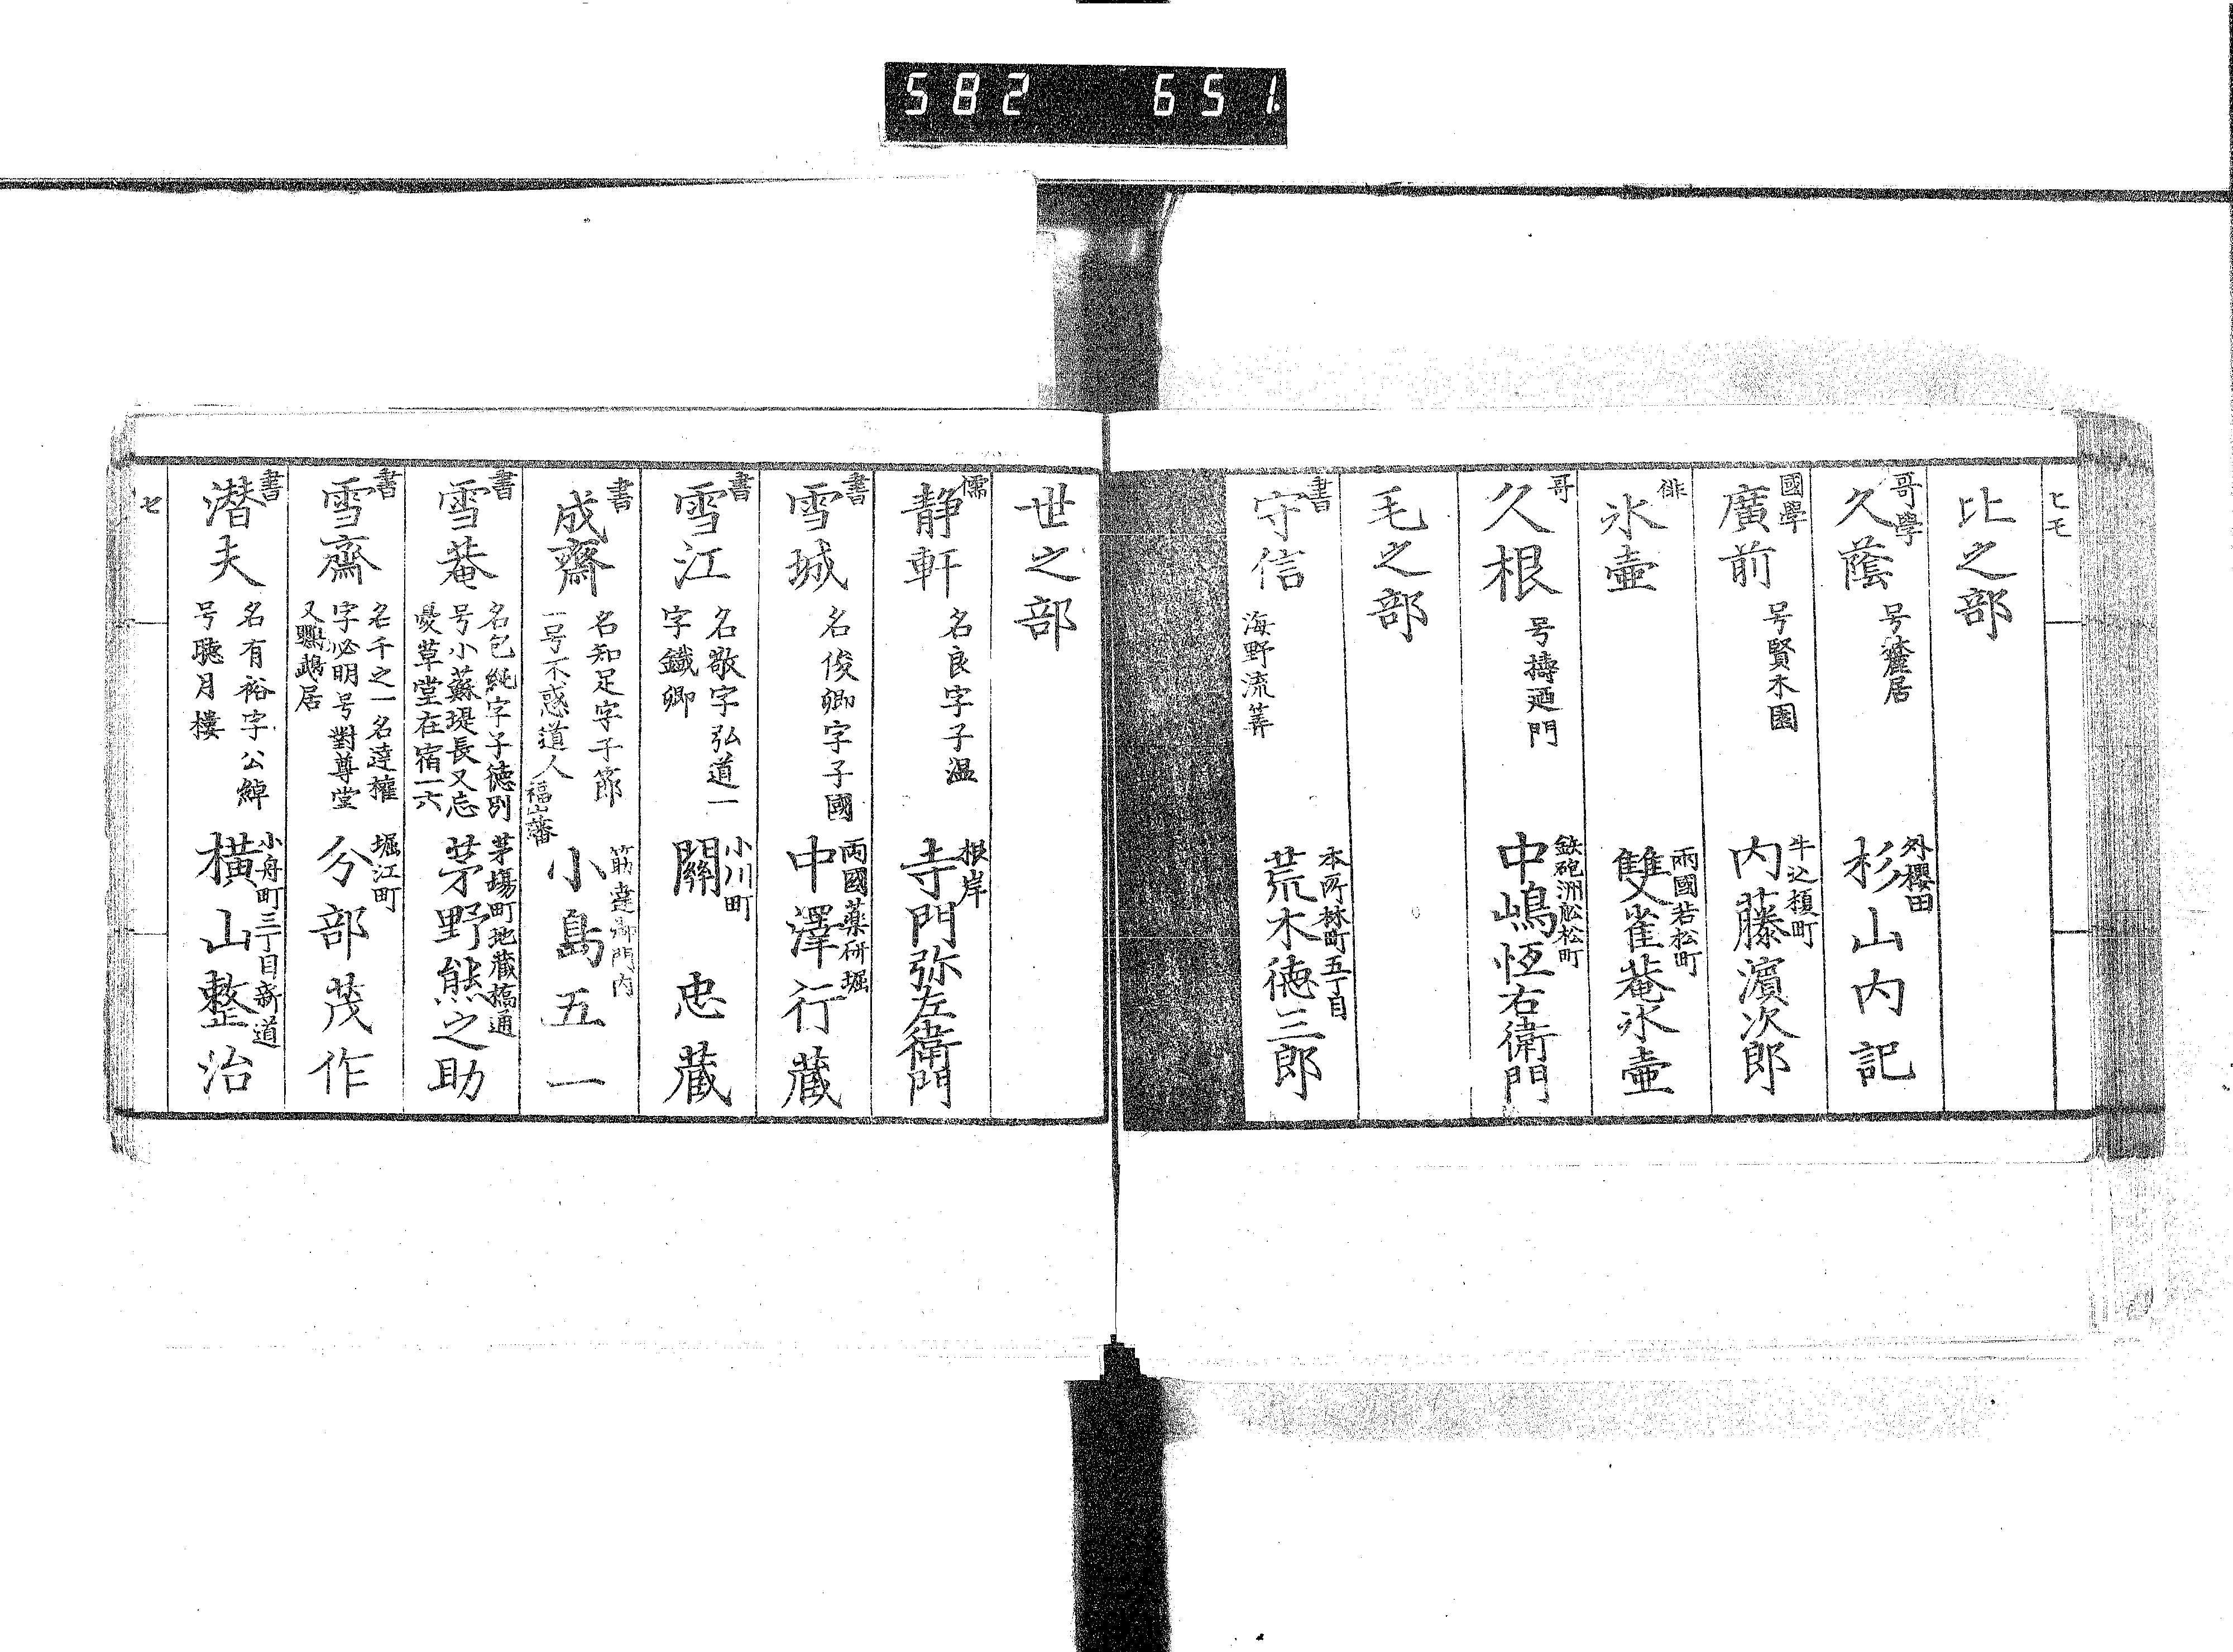 582 651
ヒモ
比之部
哥學
久蔭
号
居
外櫻田
杉山内記
國學
廣前
号賢木園
牛込榎町
内藤濵次郎
俳
氷壷
兩國若松町
雙雀菴氷壷
哥
久根
号擣廼門
鉄砲洲舩松町
中嶋恆右衛門
毛之部
書
守信
海野流筭
本所林町五丁目
荒木徳三郎
世之部
儒
静軒
名良字子温
根岸
寺門弥左衛門
書
雪城
名俊卿字子國
両國薬研堀
中澤行藏
書
雪江
名敬字弘道一
字鐵卿
小川町
關忠藏
書
成齋
名知足字子節
一号不惑道人
福山藩
筋違御門内
小島五一
書
雪菴
名包純字子徳別
号小蘇堤長又忘
憂草堂在宿一六
茅場町地藏橋通
茅野熊之助
書
雪齋
名千之一名達權
字必明号對尊堂
又鸚鵡居
堀江町
分部茂作
書
潜夫
名有裕字公綽
号聴月樓
小舟町三丁目新道
横山整治
セ